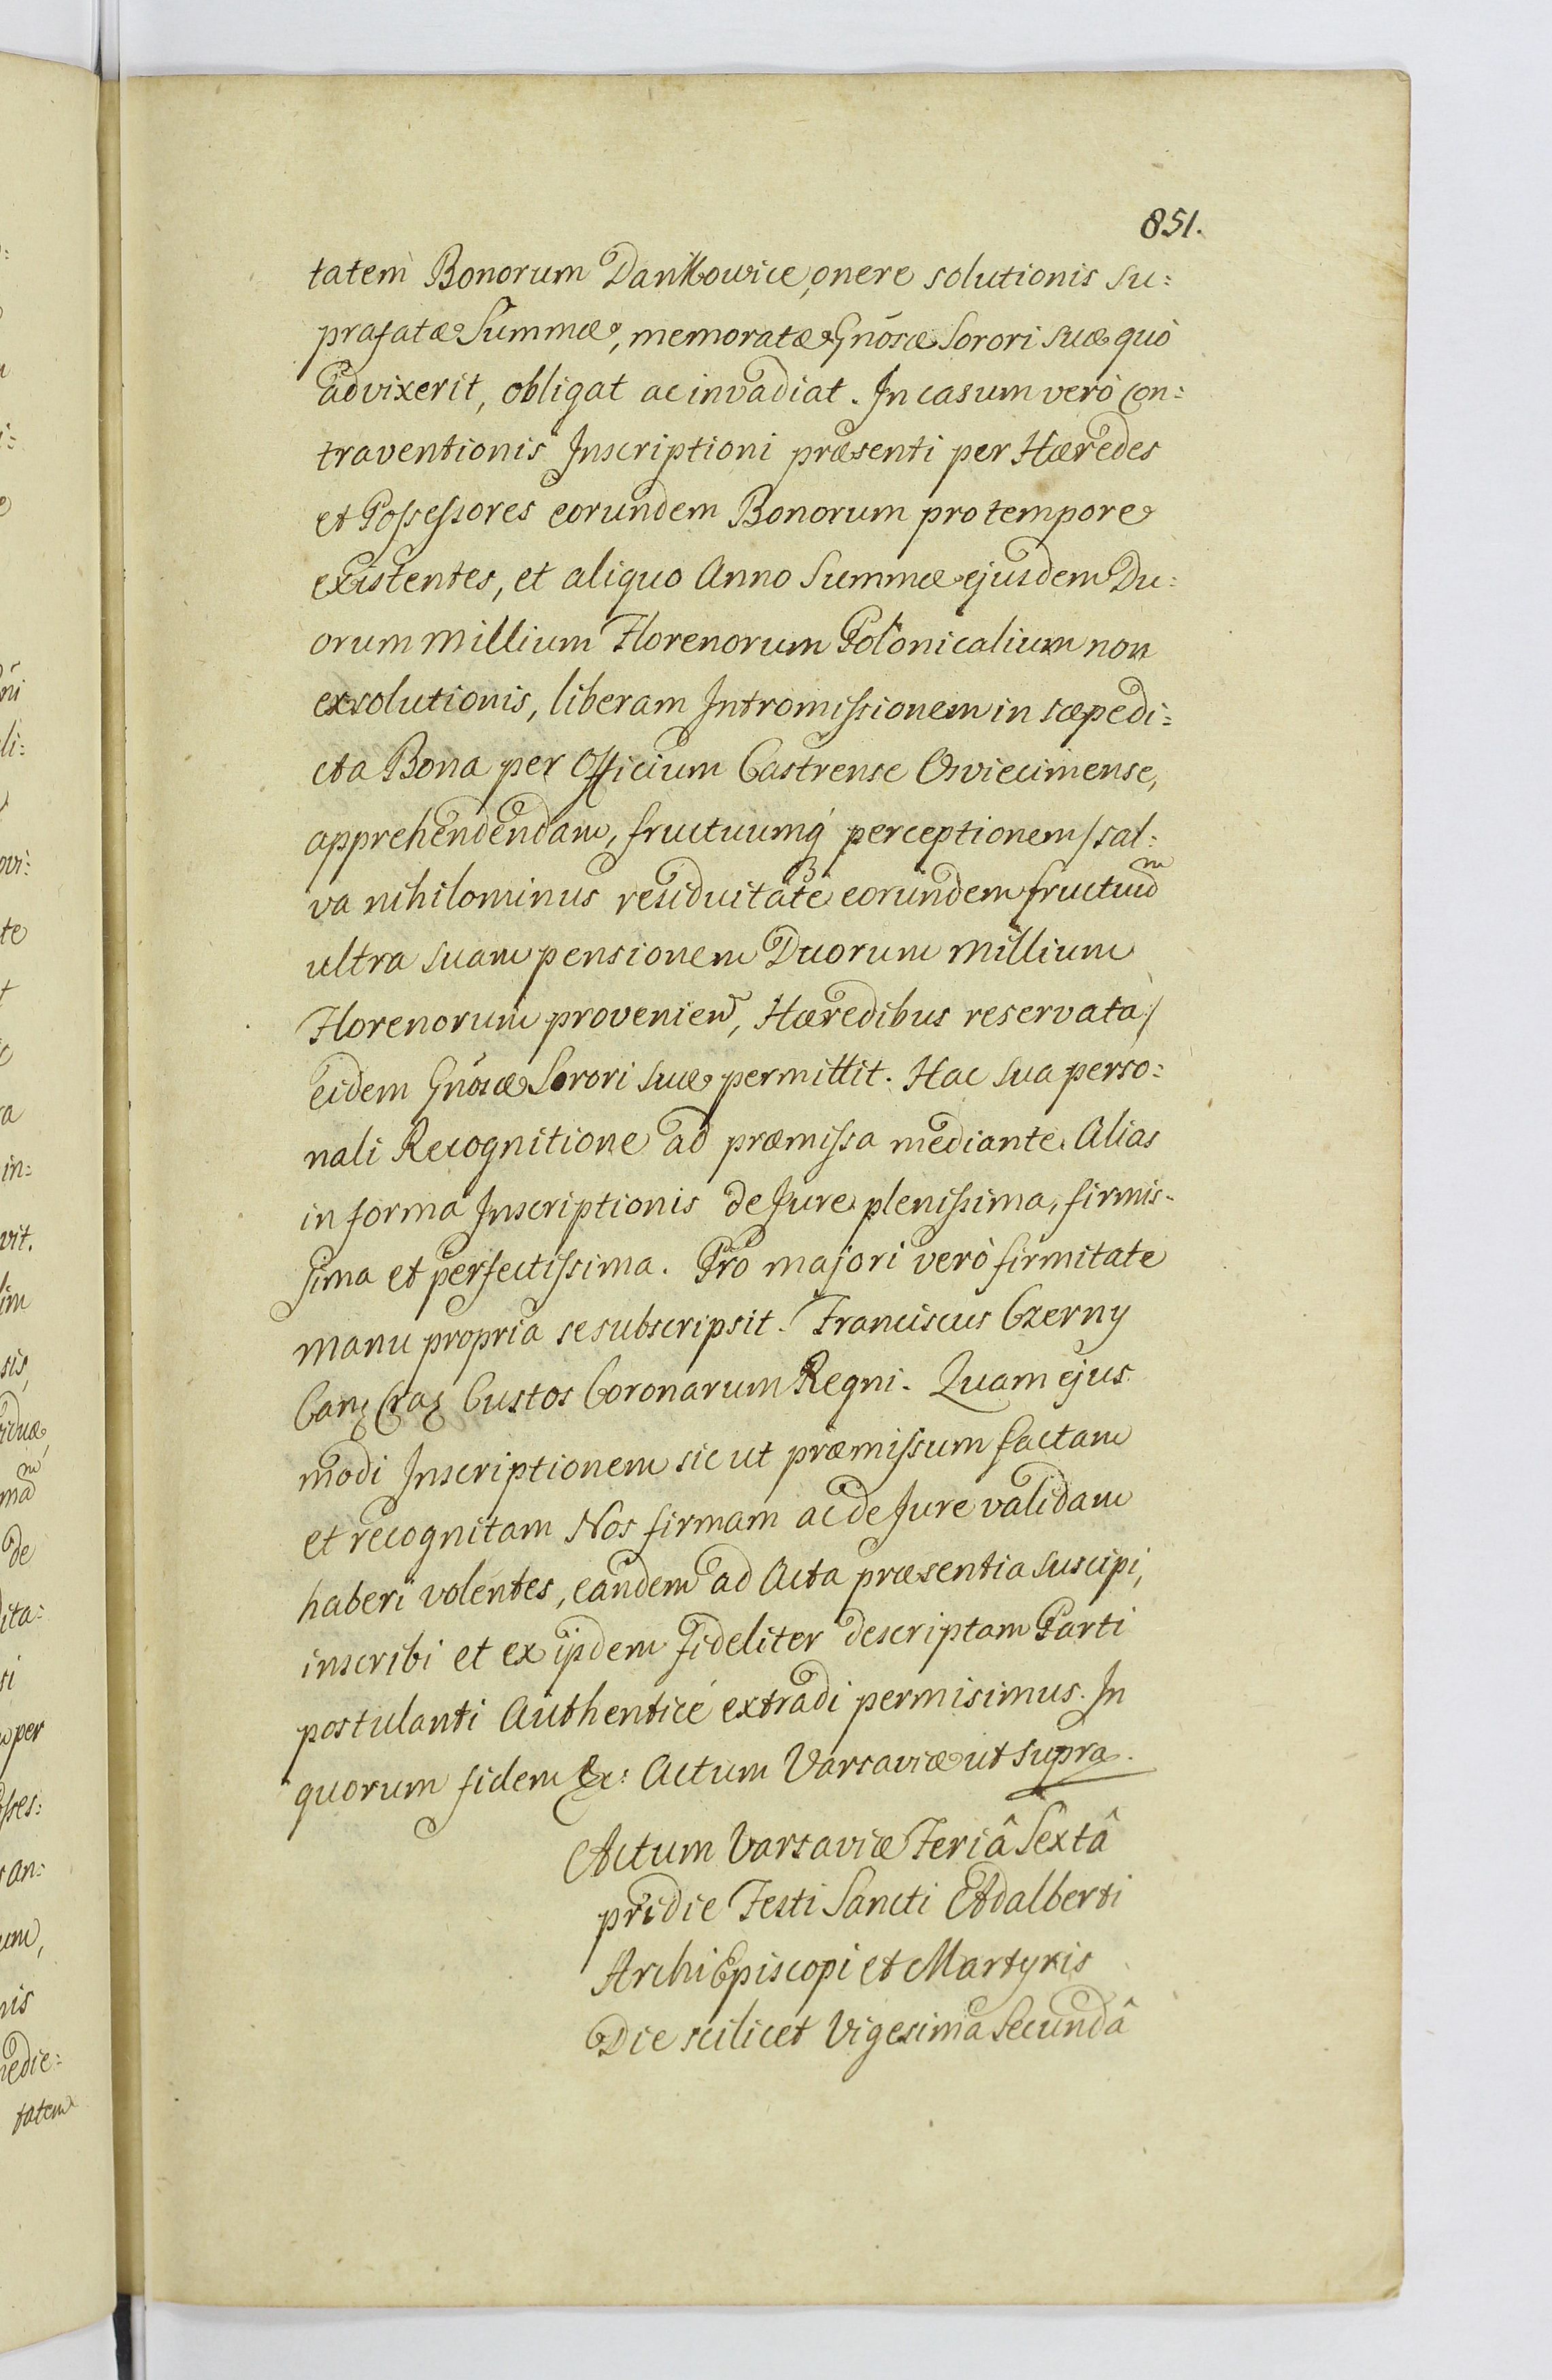 851.
tatem Bonorum Dankowice, onere solutionis su:
prafatæ Summæ, memoratæ Gnosæ Sorori suæ quò
advixerit, obligat ac invadiat. In casum verò con:
traventionis Inscriptioni præsenti per Hæredes
et Possessores eorundem Bonorum pro tempore
existentes, et aliquo Anno Summæ ejusdem Du:
orum Millium Florenorum Polonicalium non
exsolutionis, liberam Intromissionem in sæpedi:
cta Bona per Officium Castrense Osviecimense,
apprehendendam, fructuumq́ perceptionem /sal:
va nihilominus residuitate eorundem fructuũm
ultra suam pensionem Duorum Millium
Florenorum provenien, Hæredibus reservata/
eidem Gnosæ Sorori suæ permittit. Hac sua perso:
nali Recognitione ad præmissa mediante. Alias
in forma Inscriptionis de Jure plenissima, firmis-
sima et perfectissima. Pro majori verò firmitate
manu propria se subscripsit. Franciscus Czerny
Custos Coronarum Regni. Quam ejus
modi Inscriptionem sic ut præmissum factam
et recognitam Nos firmam ac de Jure validam
haberi volentes, eandem ad Acta præsentia suscipi,
inscribi et ex ijsdem fideliter descriptam Parti
postulanti Authenticé extradi permisimus. In
quorum fidem &c: Actum Varsaviæ ut supra.
Actum Varsaviæ Feriâ Sextâ
pridie Festi Sancti Adalberti
ArchiEpiscopi et Martyris
Die scilicet Vigesima Secundâ